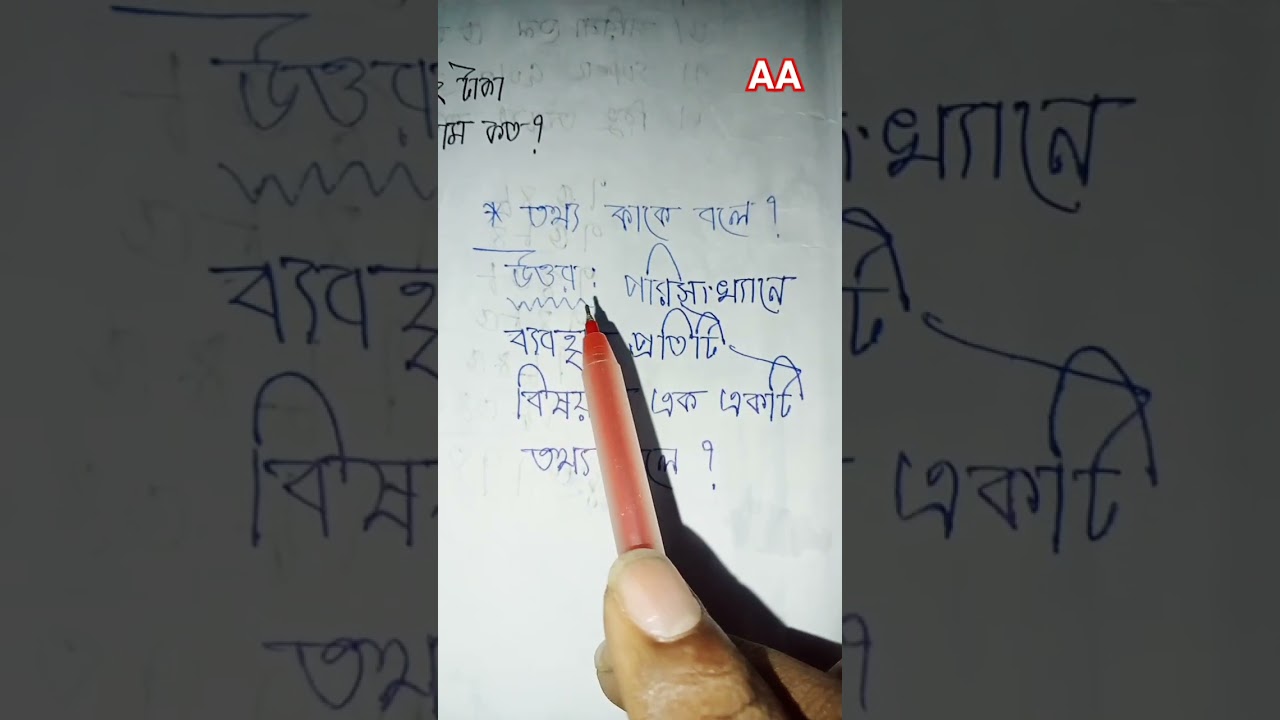 AA
টাকা
কত?
* তথ্য কাকে বলে?
উত্তর: পরিসংখ্যানে
ব্যবহৃত প্রতিটি
বিষয় এক একটি
তথ্য বলে ?